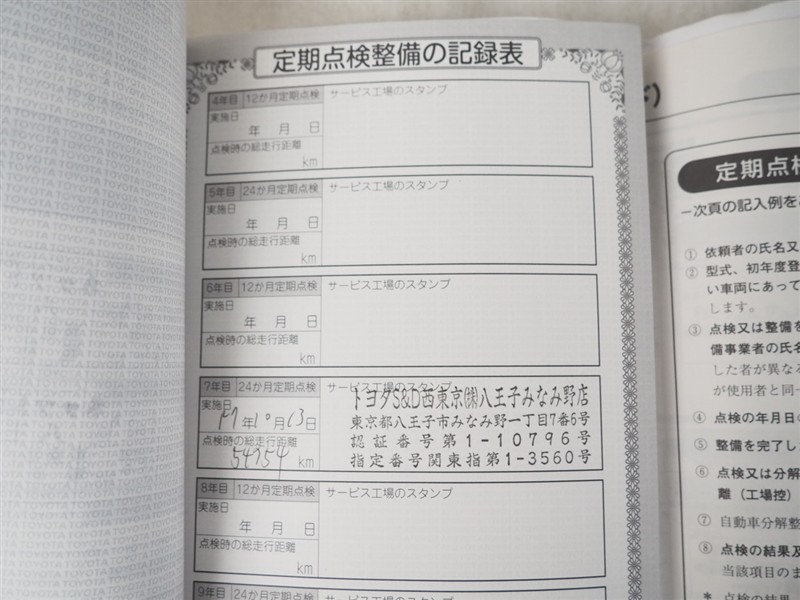 定期点検整備の記録表
4年目 12か月定期点検 サービス工場のスタンプ
実施日
年 月 日
点検時の総走行距離
km
5年目 24か月定期点検 サービス工場のスタンプ
実施日
年 月 日
点検時の総走行距離
km
6年目 12か月定期点検 サービス工場のスタンプ
実施日
年 月 日
点検時の総走行距離
km
7年目 24か月定期点検 サービス工場のスタンプ
実施日
年10月13日
点検時の総走行距離
54754 km
トヨタS&D西東京㈱八王子みなみ野店
東京都八王子市みなみ野一丁目7番6号
認証番号第1-10796号
指定番号関東指第1-3560号
8年目 12か月定期点検 サービス工場のスタンプ
実施日
年 月 日
点検時の総走行距離
km
9年目 24か月定期点検 サービス工場のスタンプ
定期点検
一次頁の記入例を
① 依頼者の氏名又
② 型式、初年度登
い車両にあって
します。
③ 点検又は整備を
備事業者の氏名
した者が異なる
が使用者と同一
④ 点検の年月日の
⑤ 整備を完了し
⑥ 点検又は分解
離（工場控）
⑦ 自動車分解整
⑧ 点検の結果及
当該項目のま
* 点検の結果
TOYOTA